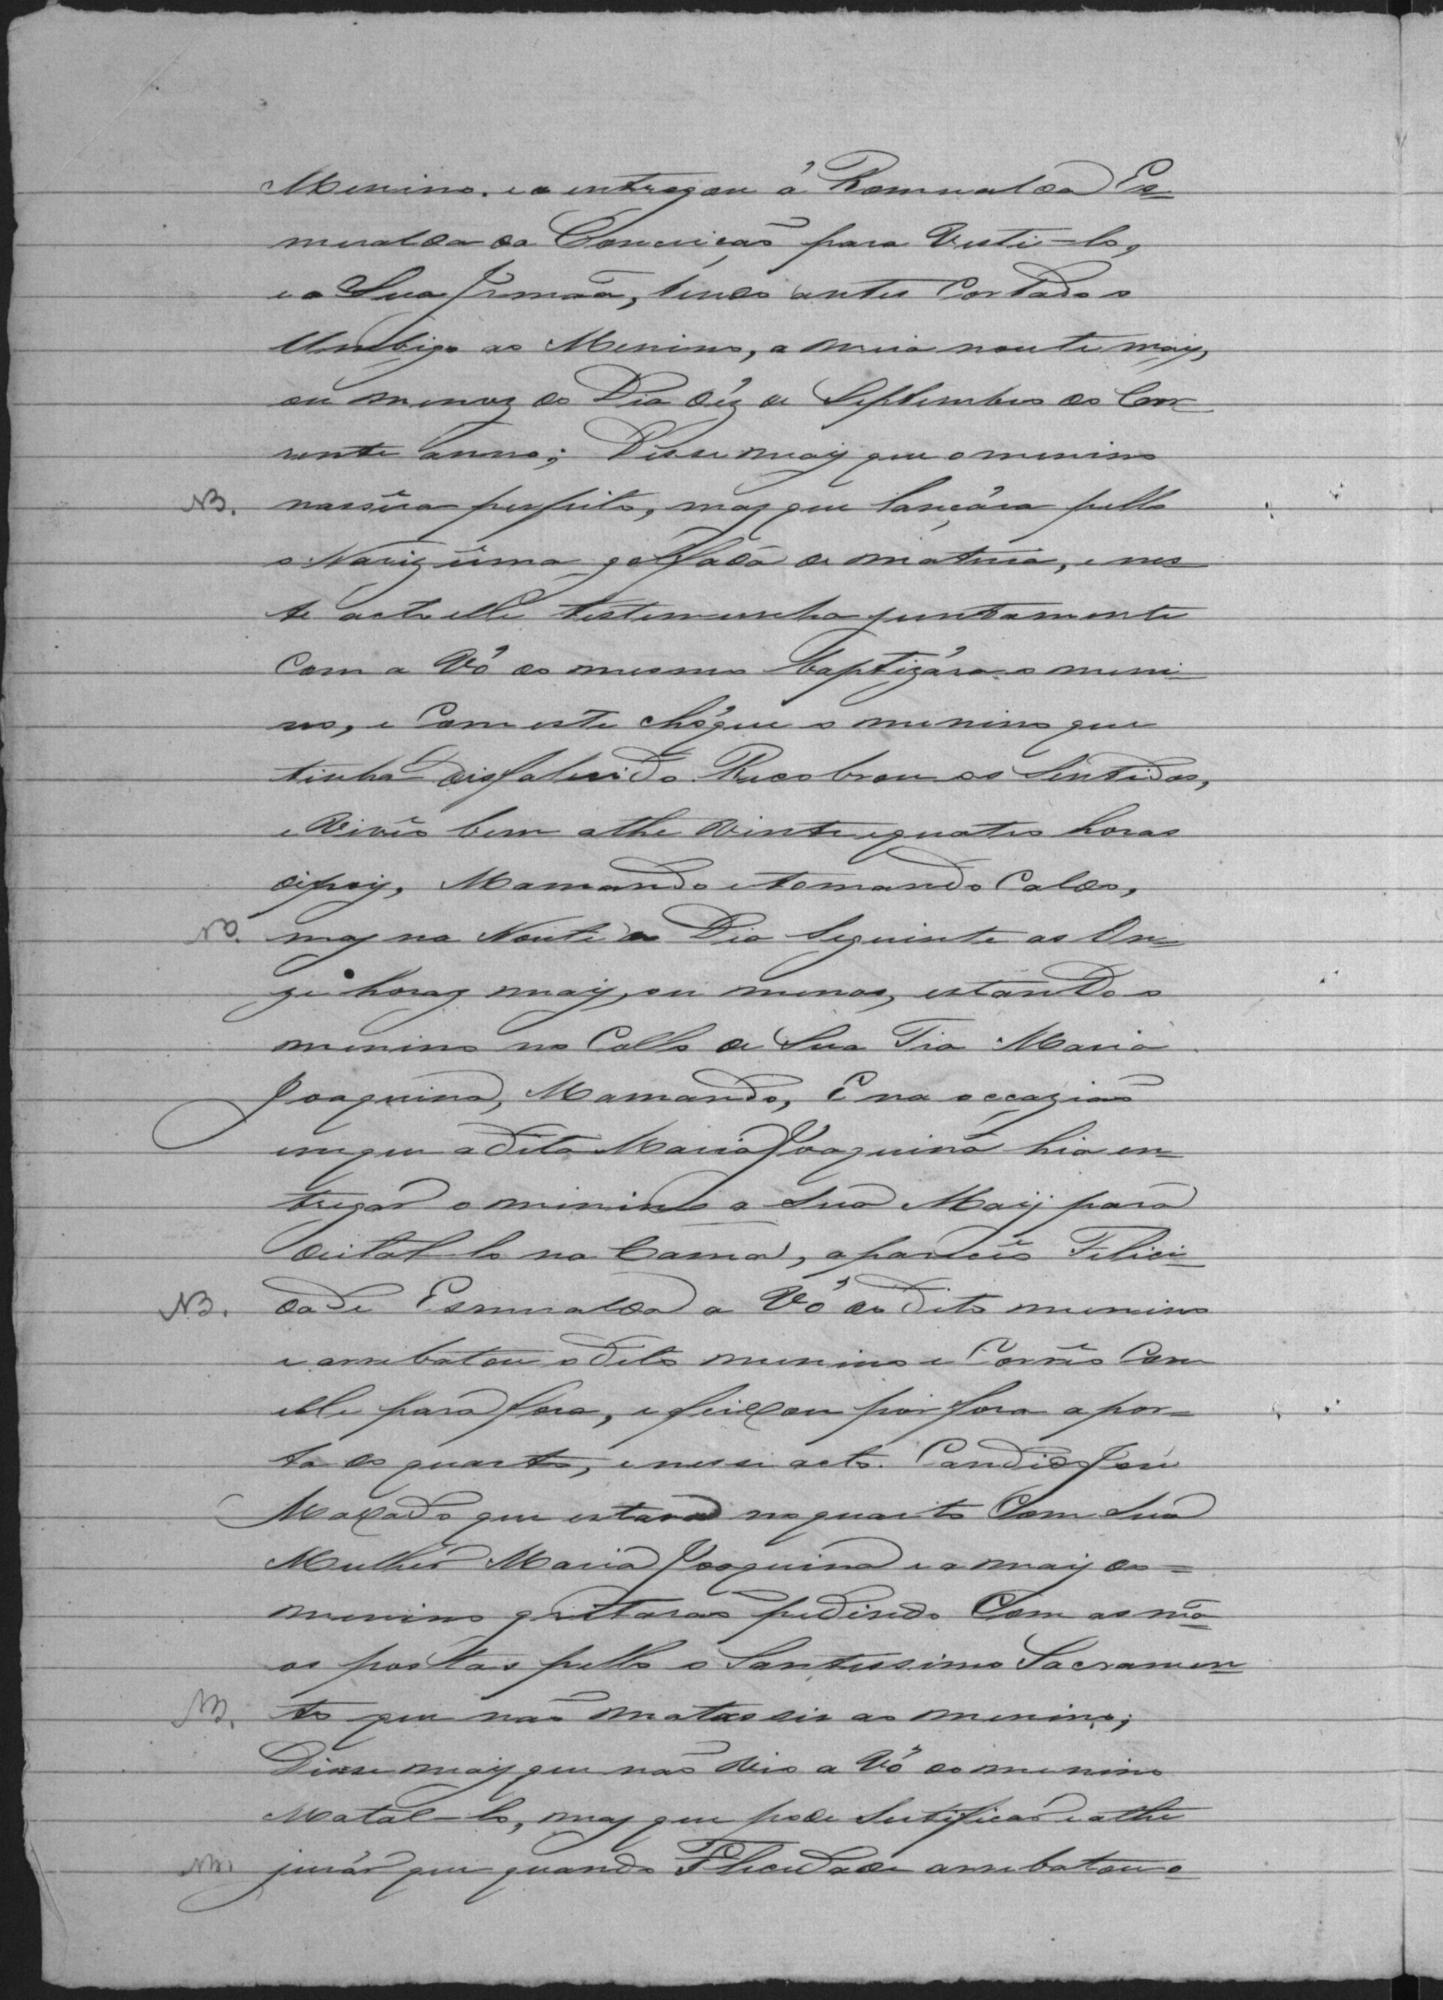 Menino. e o entregou á Romualda Es=
meralda da Conceicão para Vesti-lo,
e a Sua Irmaã, tendo antes Cortado o
Umbigo ao Menino, a meia noute may,
ou menoz do Dia déz de Septembro do Cor=
rente anno; Disse may que o menino
NB. nascêra perfeito, may que lançára pello
o Nariz ûma golfada de materia, e nes=
te acto elle testemunha juntamente
Com a Vó do mesmo baptizára o meni=
no, e Com este chóque o menino que
tinha disfalecido Recobrou os Sentidos,
e Vivêo bem athe Vinte e quatro horas
dipoy, Mamando e tomando Caldo,
NB. may na Noute do Dia Seguinte as On=
ze horaz may, ou menos, estando o
menino no Collo de Sua Tia Maria
Joaquina, Mamando, E na occazião
em que a dita Maria Joaquina hia en=
tregar o minino a Sua Maÿ para
deital-lo na Cama, aparecêo Felici=
NB. dade Esmeralda a Vó do dito menino
e arrebatou o dito menino e Corrêo Com
elle para fora, e feixou por fora a por=
ta do quarto, e nesse acto. Candido José
Maxado que estava no quarto Com Sua
Mulher Maria Joaquina e a may do=
menino gritarão pedindo Com as mã=
os postas pello o Santissimo Sacramen=
NB. to que não matasse ao menino;
Disse may que não Vio a Vó do menino
Matal-lo, may que pode Sertificar e athe
NB. jurár que quando Felicidade arrebatou o